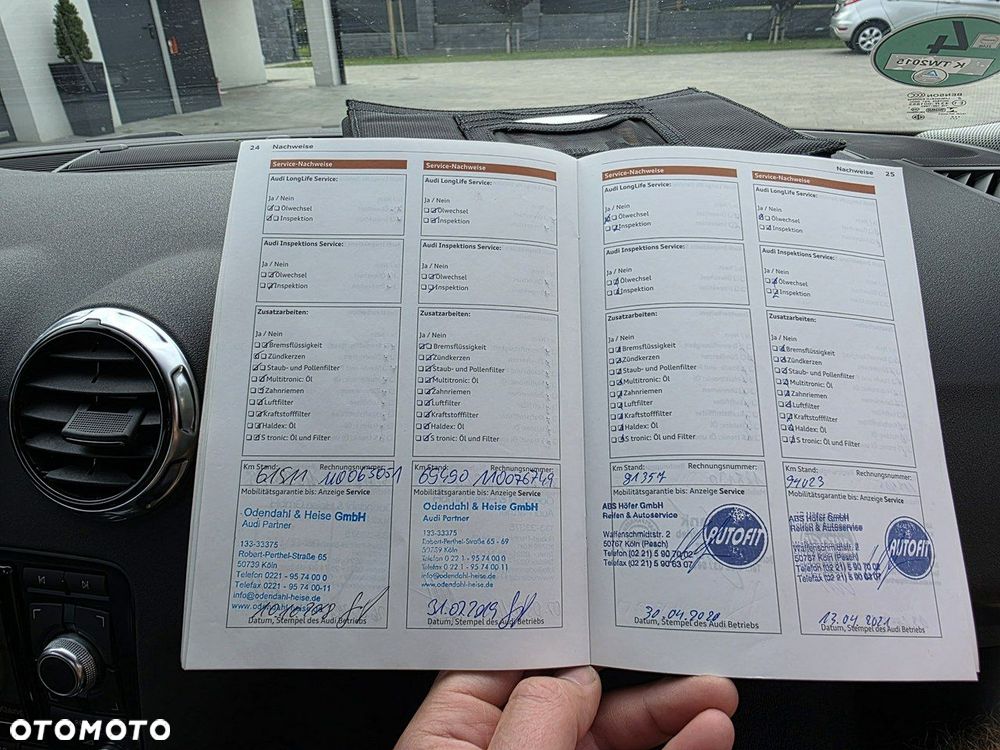 4
K TW2015
BENSON
24 Nachweise
Service-Nachweise
Audi LongLife Service:
Ja / Nein
Ölwechsel
Inspektion
Audi Inspektions Service:
Ja / Nein
Ölwechsel
Inspektion
Zusatzarbeiten:
Ja / Nein
Bremsflüssigkeit
Zündkerzen
Staub- und Pollenfilter
Multitronic: Öl
Zahnriemen
Luftfilter
Kraftstofffilter
Haldex: Öl
S tronic: Öl und Filter
Km Stand: Rechnungsnummer:
61511 110065051
Mobilitätsgarantie bis: Anzeige Service
Odendahl & Heise GmbH
Audi Partner
133-33375
Robert-Perthel-Straße 65
50739 Köln
Telefon 0221 - 95 74 00 0
Telefax 0221 - 95 74 00-11
info@odendahl-heise.de
www.odendahl-heise.de
Datum, Stempel des Audi Betriebs
Service-Nachweise
Audi LongLife Service:
Ja / Nein
Ölwechsel
Inspektion
Audi Inspektions Service:
Ja / Nein
Ölwechsel
Inspektion
Zusatzarbeiten:
Ja / Nein
Bremsflüssigkeit
Zündkerzen
Staub- und Pollenfilter
Multitronic: Öl
Zahnriemen
Luftfilter
Kraftstofffilter
Haldex: Öl
S tronic: Öl und Filter
Km Stand: Rechnungsnummer:
69490 110076749
Mobilitätsgarantie bis: Anzeige Service
Odendahl & Heise GmbH
Audi Partner
133-33375
Robert-Perthel-Straße 65 - 69
50739 Köln
Telefon 02 21 - 95 74 00 0
Telefax 02 21 - 95 74 00-11
info@odendahl-heise.de
www.odendahl-heise.de
31.02.2019
Datum, Stempel des Audi Betriebs
Nachweise 25
Service-Nachweise
Audi LongLife Service:
Ja / Nein
Ölwechsel
Inspektion
Audi Inspektions Service:
Ja / Nein
Ölwechsel
Inspektion
Zusatzarbeiten:
Ja / Nein
Bremsflüssigkeit
Zündkerzen
Staub- und Pollenfilter
Multitronic: Öl
Zahnriemen
Luftfilter
Kraftstofffilter
Haldex: Öl
S tronic: Öl und Filter
Km Stand: Rechnungsnummer:
81357
Mobilitätsgarantie bis: Anzeige Service
ABS Höfer GmbH
Reifen & Autoservice
Waffenschmidtstr. 2
50767 Köln (Pesch)
Telefon (02 21) 5 90 70 02
Telefax (02 21) 5 90 63 07
AUTOFIT
30.04.2020
Datum, Stempel des Audi Betriebs
Service-Nachweise
Audi LongLife Service:
Ja / Nein
Ölwechsel
Inspektion
Audi Inspektions Service:
Ja / Nein
Ölwechsel
Inspektion
Zusatzarbeiten:
Ja / Nein
Bremsflüssigkeit
Zündkerzen
Staub- und Pollenfilter
Multitronic: Öl
Zahnriemen
Luftfilter
Kraftstofffilter
Haldex: Öl
S tronic: Öl und Filter
Km Stand: Rechnungsnummer:
94023
Mobilitätsgarantie bis: Anzeige Service
ABS Höfer GmbH
Reifen & Autoservice
Waffenschmidtstr. 2
50767 Köln (Pesch)
Telefon (02 21) 5 90 70 02
Telefax (02 21) 5 90 63 07
AUTOFIT
13.04.2021
Datum, Stempel des Audi Betriebs
OTOMOTO